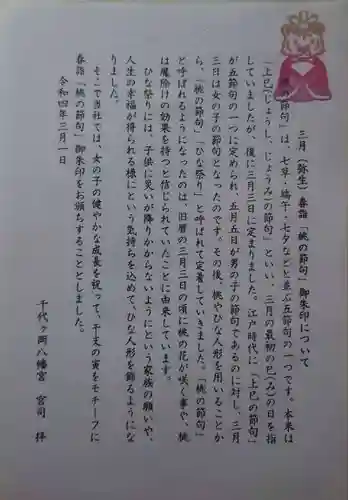 三月（弥生）春詣「桃の節句」御朱印について
「桃の節句」は、七草・端午・七夕などと並ぶ五節句の一つです。本来は
「上巳（じょうし、じょうみ）の節句」といい、三月の最初の巳（み）の日を指
していましたが、後に三月三日に定まりました。江戸時代に「上巳の節句」
が五節句の一つに定められ、五月五日が男の子の節句であるのに対し、三月
三日は女の子の節句となったのです。その後、桃やひな人形を用いることか
ら、「桃の節句」「ひな祭り」と呼ばれて定着していきました。「桃の節句」
と呼ばれるようになったのは、旧暦の三月三日の頃に桃の花が咲く事や、桃
は魔除けの効果を持つと信じられていたことに由来しています。
ひな祭りには、子供に災いが降りかからないようにという家族の願いや、
人生の幸福が得られる様にという気持ちを込めて、ひな人形を飾るようにな
りました。
そこで当社では、女の子の健やかな成長を祝って、干支の寅をモチーフに
春詣「桃の節句」御朱印をお頒ちすることとしました。
令和四年三月一日
千代ヶ岡八幡宮 宮司 拝